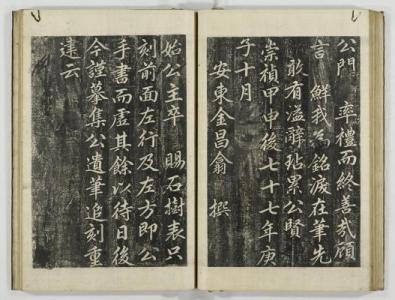 公門 率禮而終善哉顧
言 鮮我爲銘淚在筆先
敢有溢辭玷累公賢
崇禎甲申後七十七年庚
子十月
安東金昌翕 撰
始公主卒 賜石樹表只
刻前面左行及左方即公
手書而虛其餘以待日後
今謹摹集公遺筆追刻重
建云